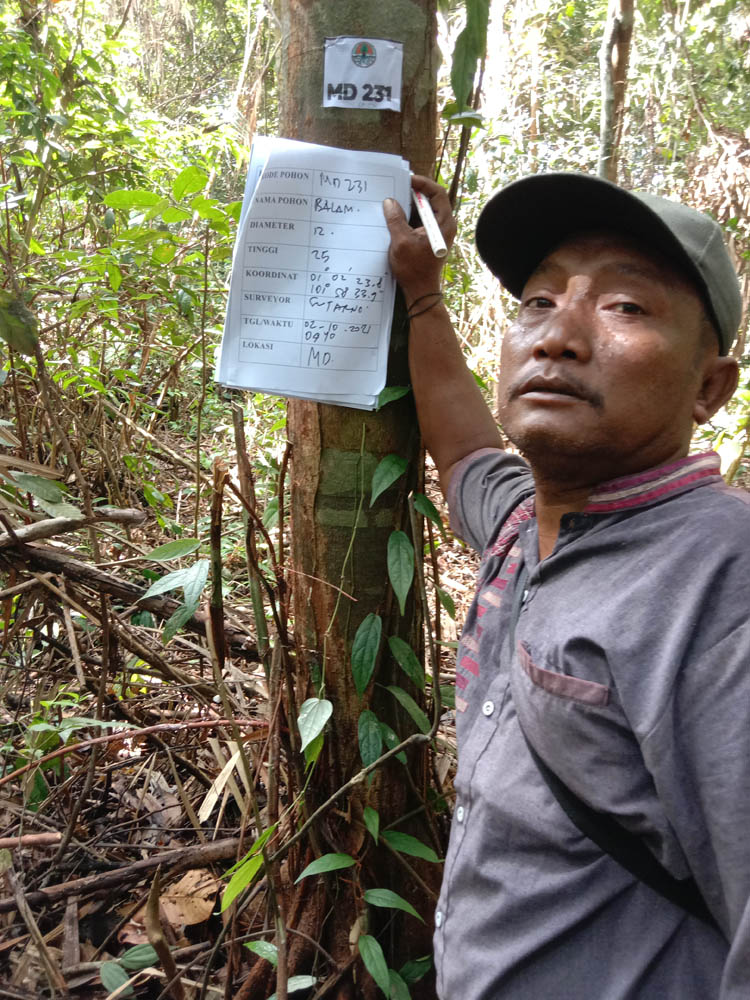 MD 231
KODE POHON MD 231
NAMA POHON BALAM.
DIAMETER 12.
TINGGI 25
KOORDINAT 01° 02' 23.8
101° 58 33.9"
SURVEYOR
TGL/WAKTU 02-10.2021
0940
LOKASI MD.